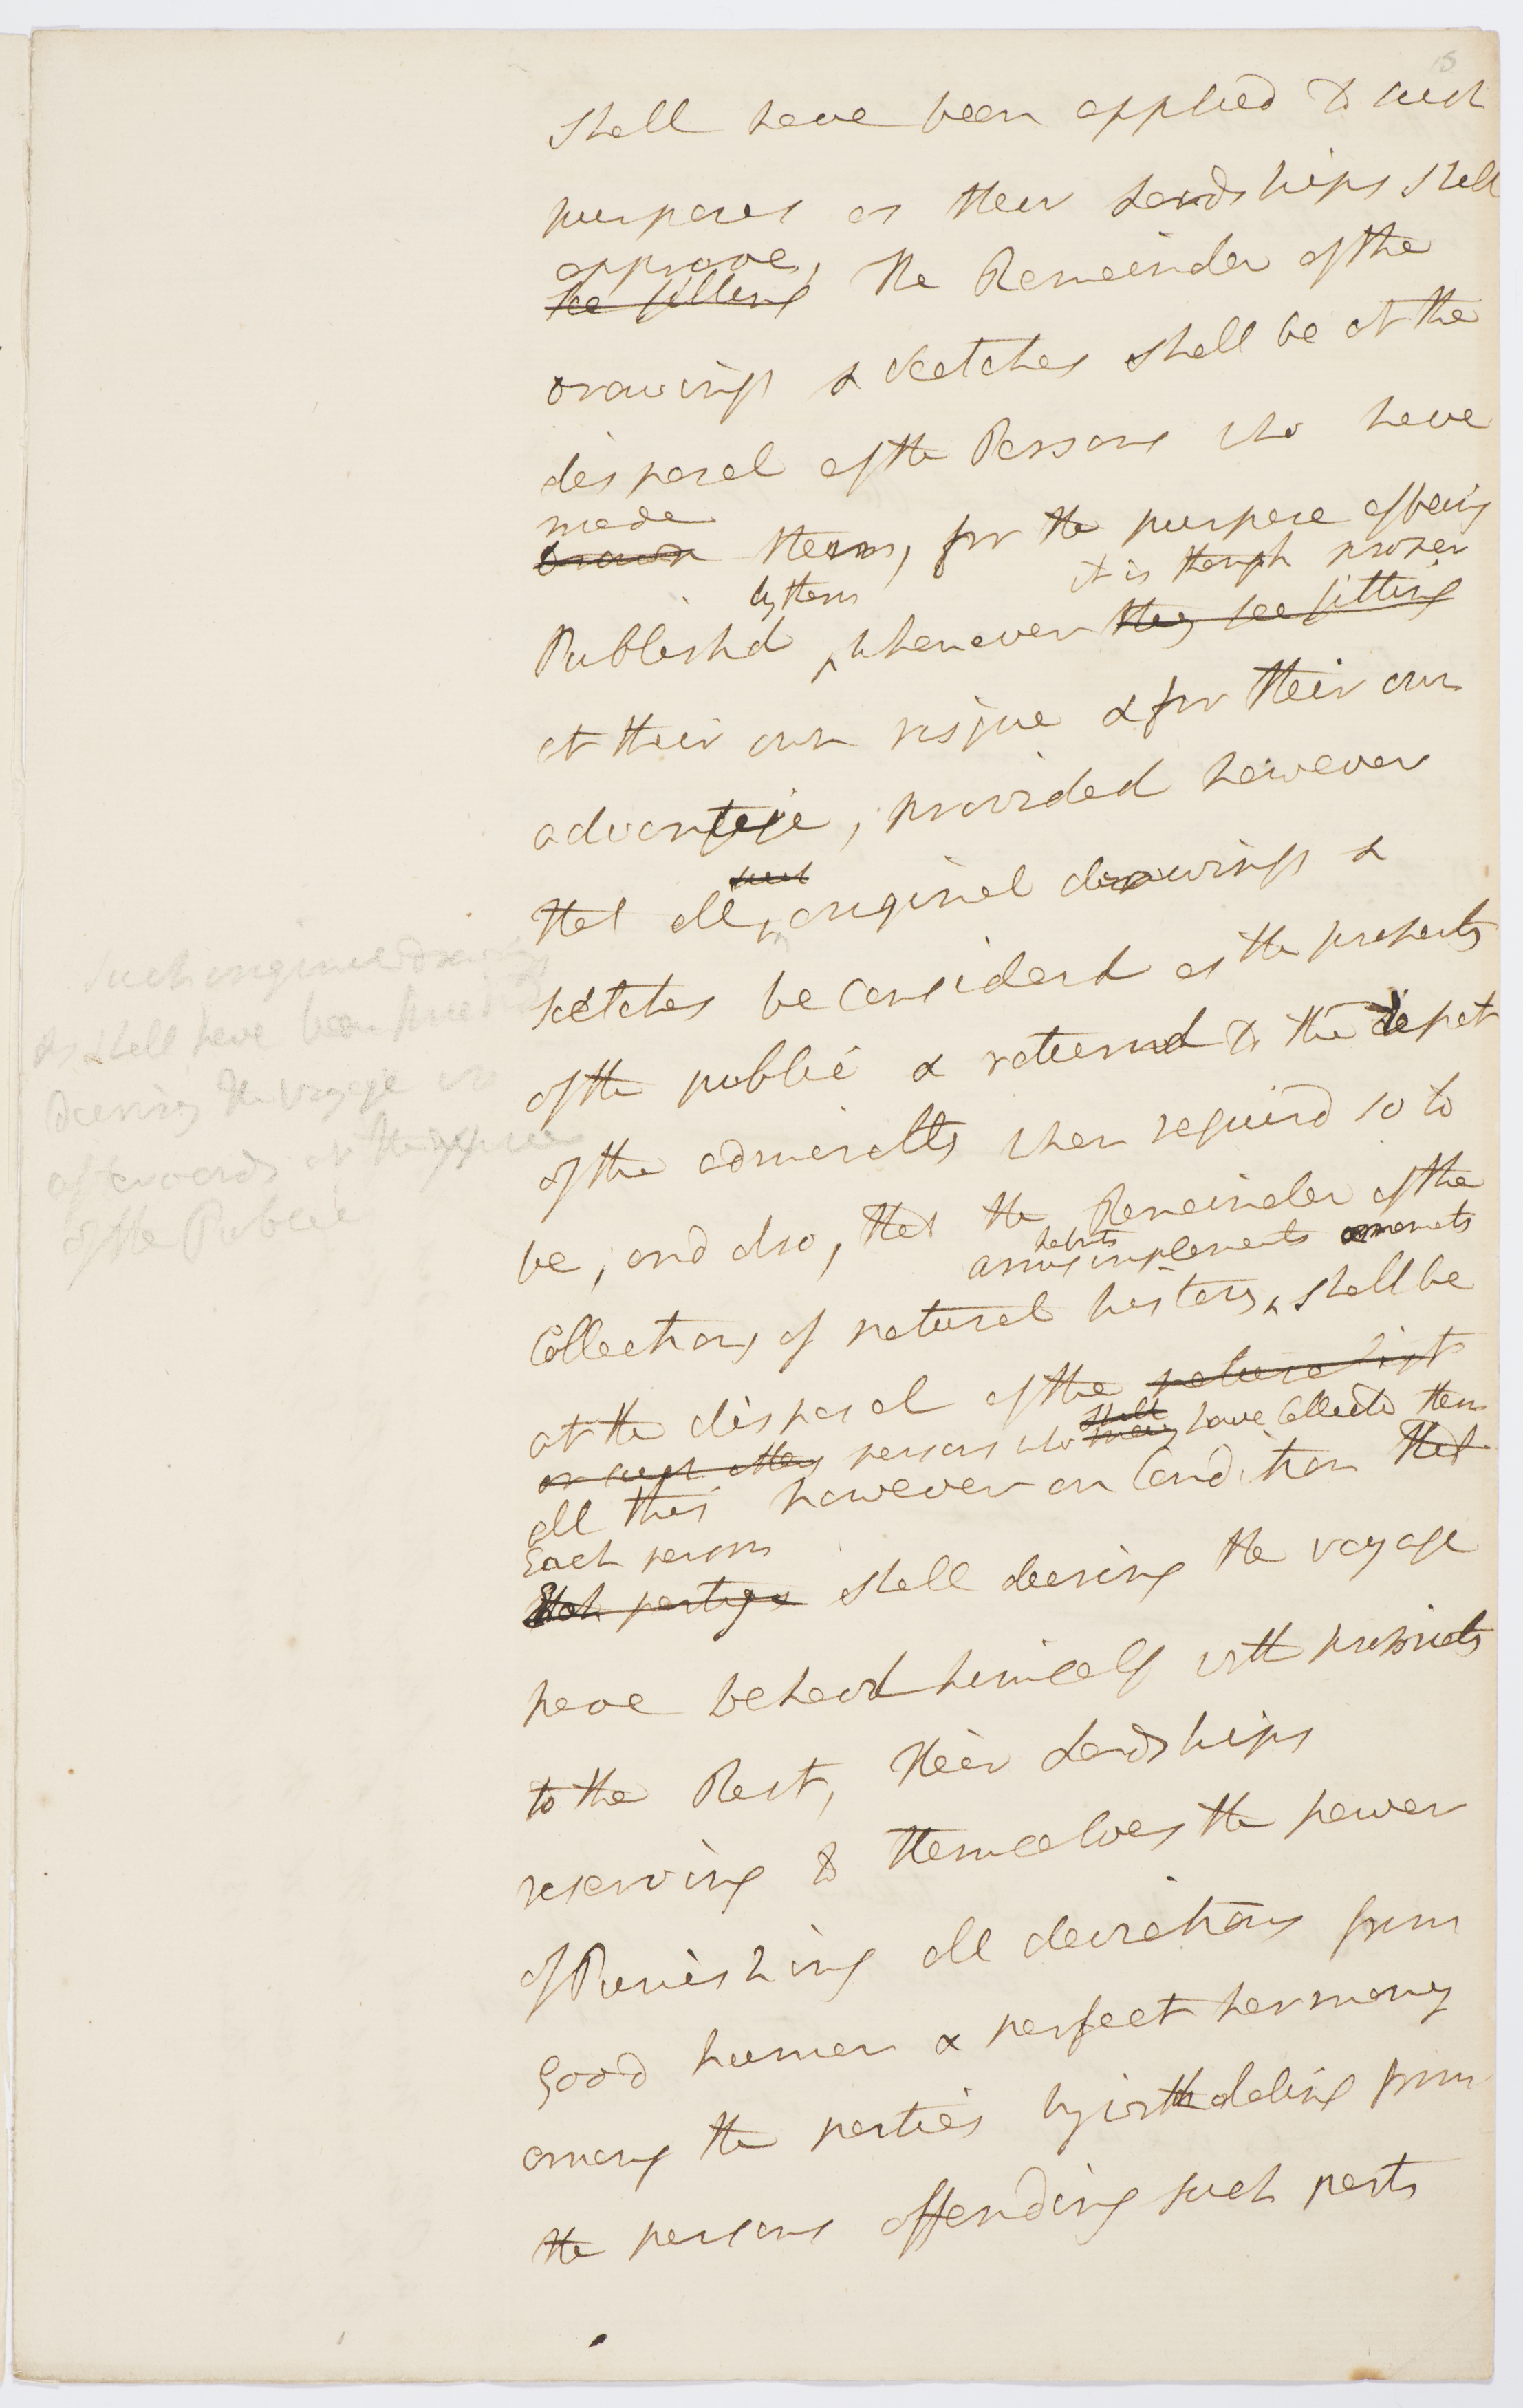 15
shall have been applied to such
purposes as their Lordships shall
approve,
see fitting the Remainder of the
drawings & sketches shall be at the
disposal of the Persons who have
made
drawn them, for the purpose of being
by them it is though proper
Publishd, whenever they see fitting
at their own risque & for their own
advantage, provided however
such
that all original drawings &
scetches be considerd as the property
of the public & returnd to the depot
of the admiralty when requird so to
be, and also, that the Remainder of the
habits
arms implements ornaments
Collections of natural history, shall be
at the disposal of the naturalist
shall
or such other persons who may have Collected them
all this however on Condition that
Each person
shall during the voyage
have behavd himself with propriety
to the Rest, their Lordships
reserving to themselves the power
of Punishing all deviations from
Good humor & perfect harmony
among the parties by withdaling from
the persons offending such parts
such original drawings
as shall have been
during the voyage or
afterwards at the expence
of the Public